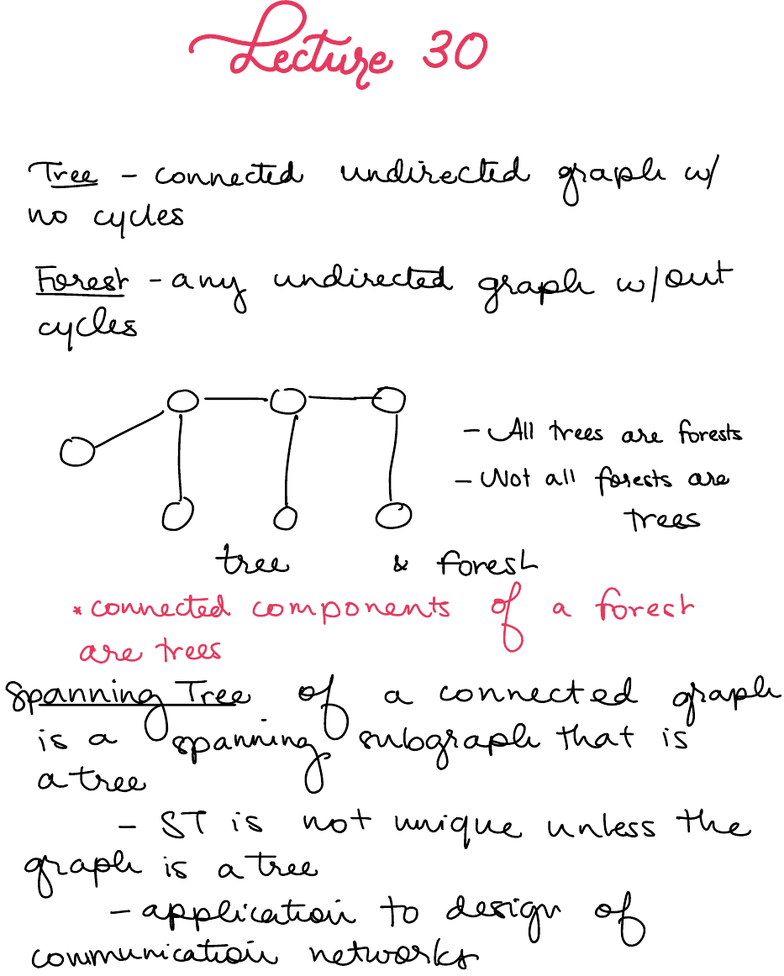 Lecture 30
Tree - connected undirected graph w/
no cycles
Forest - any undirected graph w/out
cycles
- All trees are forests
- Not all forests are
trees
tree & forest
* connected components of a forest
are trees
Spanning Tree of a connected graph
is a spanning subgraph that is
a tree
- ST is not unique unless the
graph is a tree
- application to design of
communication networks